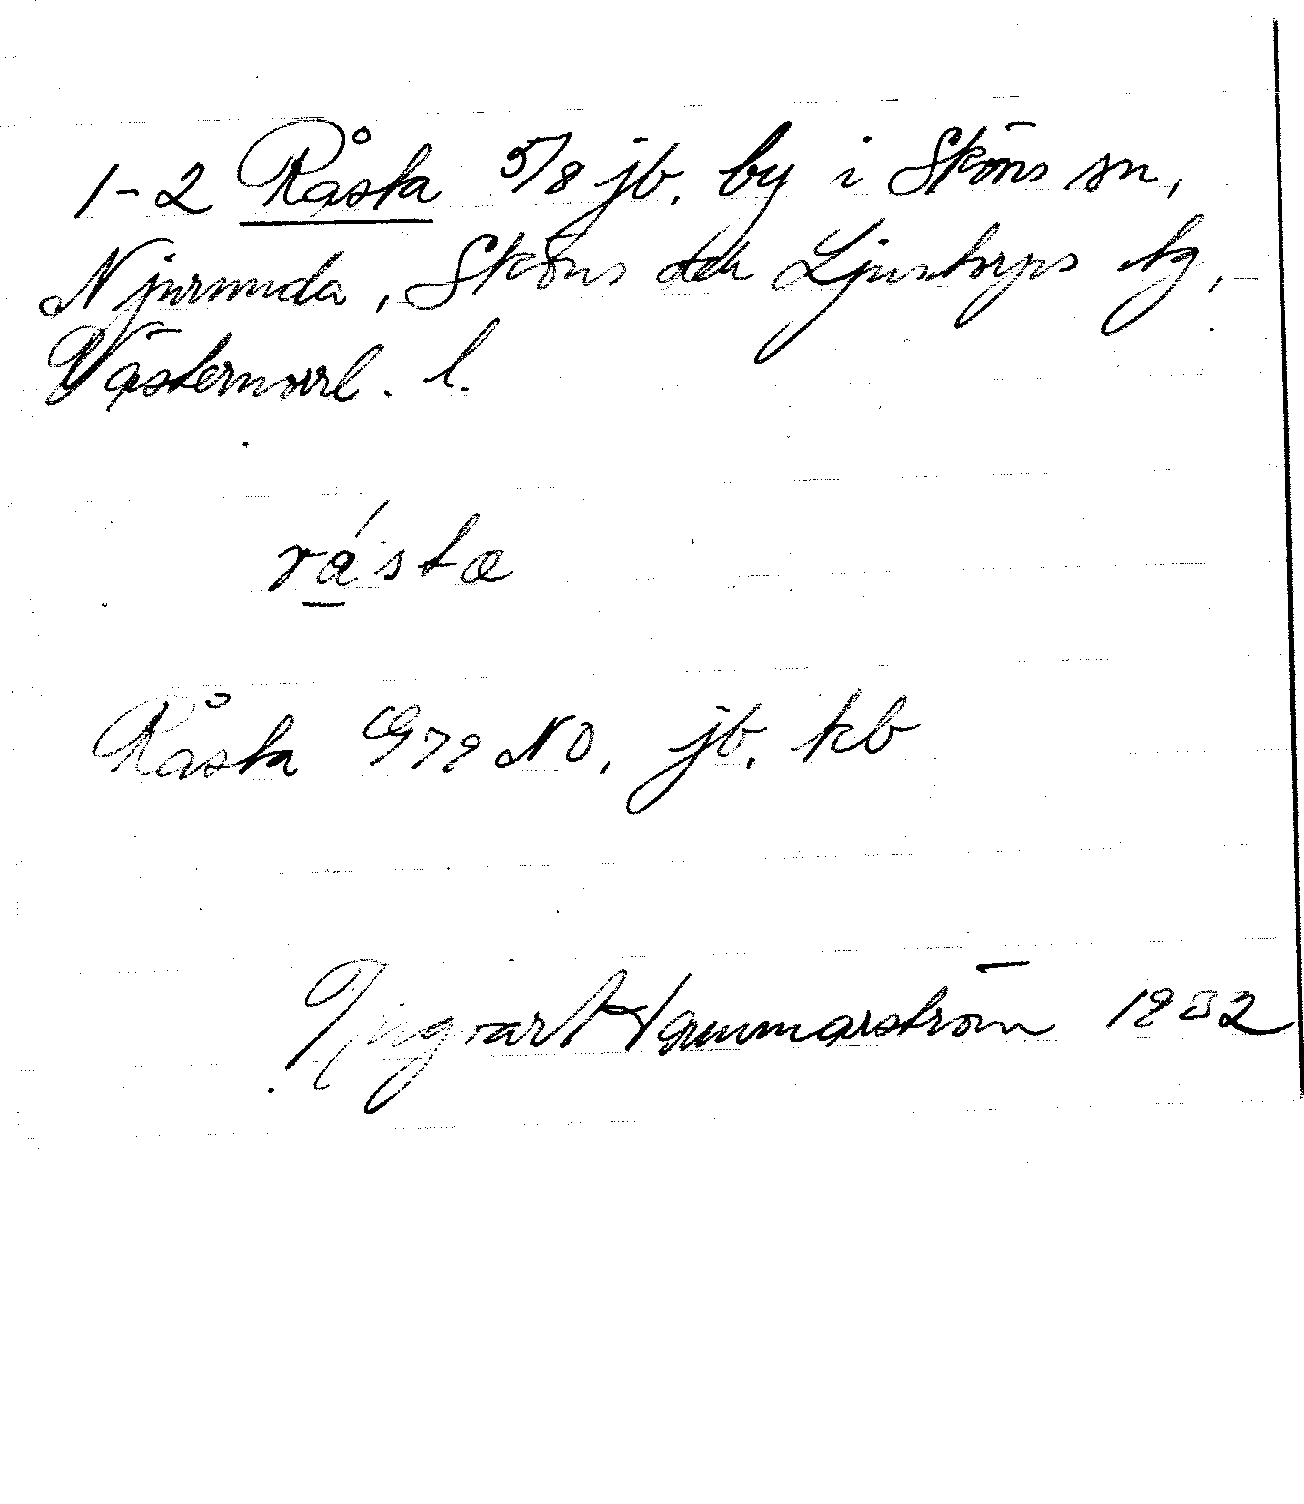 1-2 Råsta 5/8 jb. by i Sköns sn,
Njurunda, Sköns och Ljustorps tg,
Västernorrl. l.
rǻsta
Råsta G79 NO, jb. kb
Ingvar Hammarström 1952